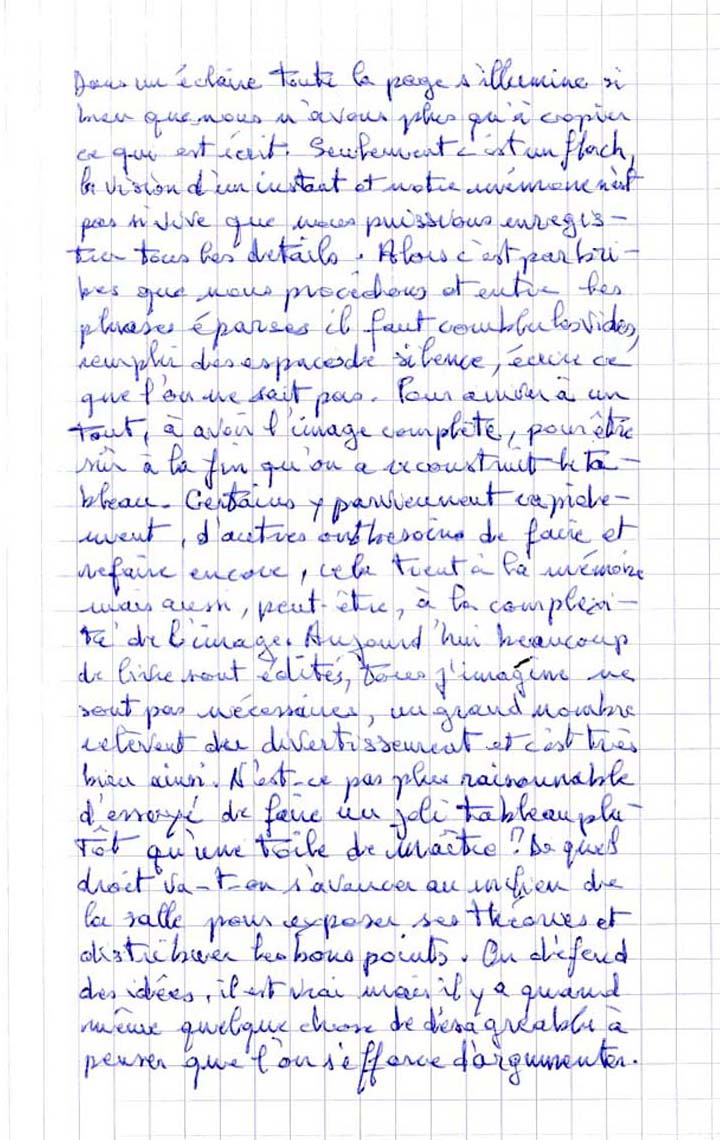 Dans un éclaire toute la page s'illumine si
bien que nous n'avons plus qu'à copier
ce qui est écrit. Seulement c'est un flach,
la vision d'un instant et notre mémoire n'est
pas si vive que nous puissions enregis-
trer tous les détails. Alors c'est par bri-
bes que nous procédons et entre les
phrases éparses il faut combler les vides,
remplir des espaces de silence, écrire ce
que l'on ne sait pas. Pour arriver à un
tout, à avoir l'image complète, pour être
sûr à la fin qu'on a reconstruit le ta-
bleau. Certains y parviennent rapide-
ment, d'autres ont besoins de faire et
refaire encore, cela tient à la mémoire
mais aussi, peut-être, à la complexi-
té de l'image. Aujourd'hui beaucoup
de livre sont édités, tous j'imagine ne
sont pas nécessaires, un grand nombre
relèvent du divertissement et c'est très
bien ainsi. N'est-ce pas plus raisonnable
d'essayé de faire un joli tableau plu-
tôt qu'une toile de maître ? De quel
droit va-t-on s'avancer au milieu de
la salle pour exposer ses théories et
distribuer les bons points. On défend
des idées, il est vrai mais il y a quand
même quelque chose de désagréable à
penser que l'on s'efforce d'argumenter.